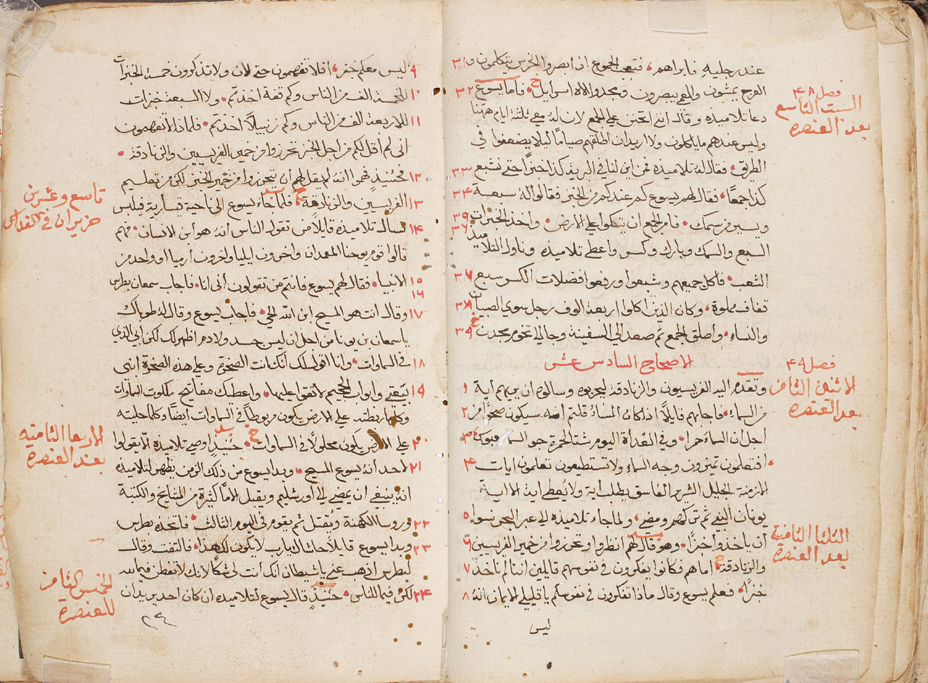 عند رجليه فابراهم، فتعجب الجموع ان ابصروا الخرس يتكلمون و ٣١
العرج يمشون والعمي يبصرون ومجدوا الاه اسراييل فاما يسوع ٣٢
فصل ٤٨
السبت التاسع
بعد العنصره
دعا تلاميذه وقال انني اتحنن على الجمع لان له معي ثلثة ايام هاهنا
وليس عندهم ما ياكلون ولا اريد ان اطلقهم صياما ليلا يضعفوا في
الطريق، فقال له تلاميذه فمن لنا في البريه كذا خبزا حتى نشبع ٣٣
كذا جمعا، فقال لهم يسوع كم عندكم من الخبز فقالوا له سبعة ٣٤
ويسير من سمك، فامر الجمع ان يتكوا على الارض، واخذ الخبزات ٣٥
٣٦
السبع والسمك وبارك وكسر واعطى تلاميذه وناول التلاميذ
الشعب، فاكل جميعهم وشبعوا ورفعوا فضلات الكسر سبع ٣٧
قفاف مملوة، وكان الذين اكلوا اربعة الوف رجل سوى الصبيان ٣٨
والنساء، واطلق الجمع ثم صعد الى السفينة وجا الى تخوم مجدن ٣٩
الاصحاح السادس عشر
فصل ٤٩
الاثنين الثامن
بعد العنصره
وتقدم اليه الفريسيون والزنادقة ليجربوه وسالوه ان يريهم اية ١
من السماء، فاجابهم قايلا اذا كان المساء قلتم انه سيكون صحوا من ٢
اجل ان السماء حمرا، وفي الغداة اليوم شتا لحمرة جو السماء ٣
افتعلمون تميزون وجه السماء ولا تستطيعون تعلمون ايات ٤
الازمنة الجيل الشرير الفاسق يطلب اية ولا يعطى اية الا اية
يونان النبي ثم تركهم ومضى، ولما جاء تلاميذه الى عبر البحر نسوا ٥
الثلثا الثامنه
بعد العنصره
ان ياخذوا خبزا، وهو قال لهم انظروا وتحرزوا من خمير الفريسيين ٦
والزنادقة اما هم فكانوا يفكرون في نفوسهم قايلين اننا لم ناخذ ٧
خبزا، فعلم يسوع وقال ماذا تفكرون في نفوسكم يا قليلي الايمان انه ٨
ليس
٩ ليس معكم خبز، افلا تفهمون حتى الان ولا تذكرون خمسة الخبزات
١٠ للخمسة الف من الناس وكم قفة اخذتم، ولا السبعة خبزات
١١ للاربعة الف من الناس وكم زنبيلا اخذتم، فلماذا لا تفهمون
اني لم اقل لكم من اجل الخبز تحرزوا من خمير الفريسيين والزنادقة،
١٢ فحينيذ فهموا انه لم يقل لهم ان يتحرزوا من خمير الخبز لكن من تعليم
تاسع وعشرين
حزيران في القداس
١٣ الفريسيين والزنادقة فلما جاء يسوع الى ناحية قسارية فيلبس
١٤ سال تلاميذه قايلا من تقول الناس انه هو ابن الانسان، فهم
قالوا قوم يوحنا المعمدان واخرون ايليا واخرون ارميا او واحد من
١٥ الانبيا، فقال لهم يسوع فانتم من تقولون اني انا، فاجاب سمعان بطرس
١٦
١٧ وقال انت هو المسيح ابن الله الحي، فاجاب يسوع وقال له طوباك
يا سمعان بن يونا من اجل ان ليس جسد ولا دم اظهر لك لكن ابي الذي
١٨ في السماوات، وانا اقول لك انك انت الصخرة وعلى هذه الصخرة ابني
١٩ بيعتي وابواب الجحيم لا تقوى عليها، واعطيك مفاتيح ملكوت السماوات
وكلما ربطته على الارض يكون مربوطا في السماوات ايضا وكلما حليته
٢٠ على الارض يكون محلولا في السماوات حينيذ اوصى تلاميذه الا يقولوا
الاربعا الثامنه
بعد العنصره
٢١ لاحد انه يسوع المسيح، وبدا يسوع من ذلك الزمن يظهر لتلاميذه
انه ينبغي ان يمضي الى اورشليم ويقبل الاما كثيرة من المشايخ والكتبة
٢٢ وروسا الكهنة ويقتل ثم يقوم في اليوم الثالث، فاتخذه بطرس
٢٣ وبدا يسوع قايلا حاشاك يا رب لا يكون لك هذا، فالتفت وقال
الخميس الثامن
للعنصرة
لبطرس اذهب عني يا شيطان انك انت لي شكا لانك لا تفطن فيما لله
٢٤ لكن فيما للناس، حينيذ قال يسوع لتلاميذه ان كان احد يريد ان